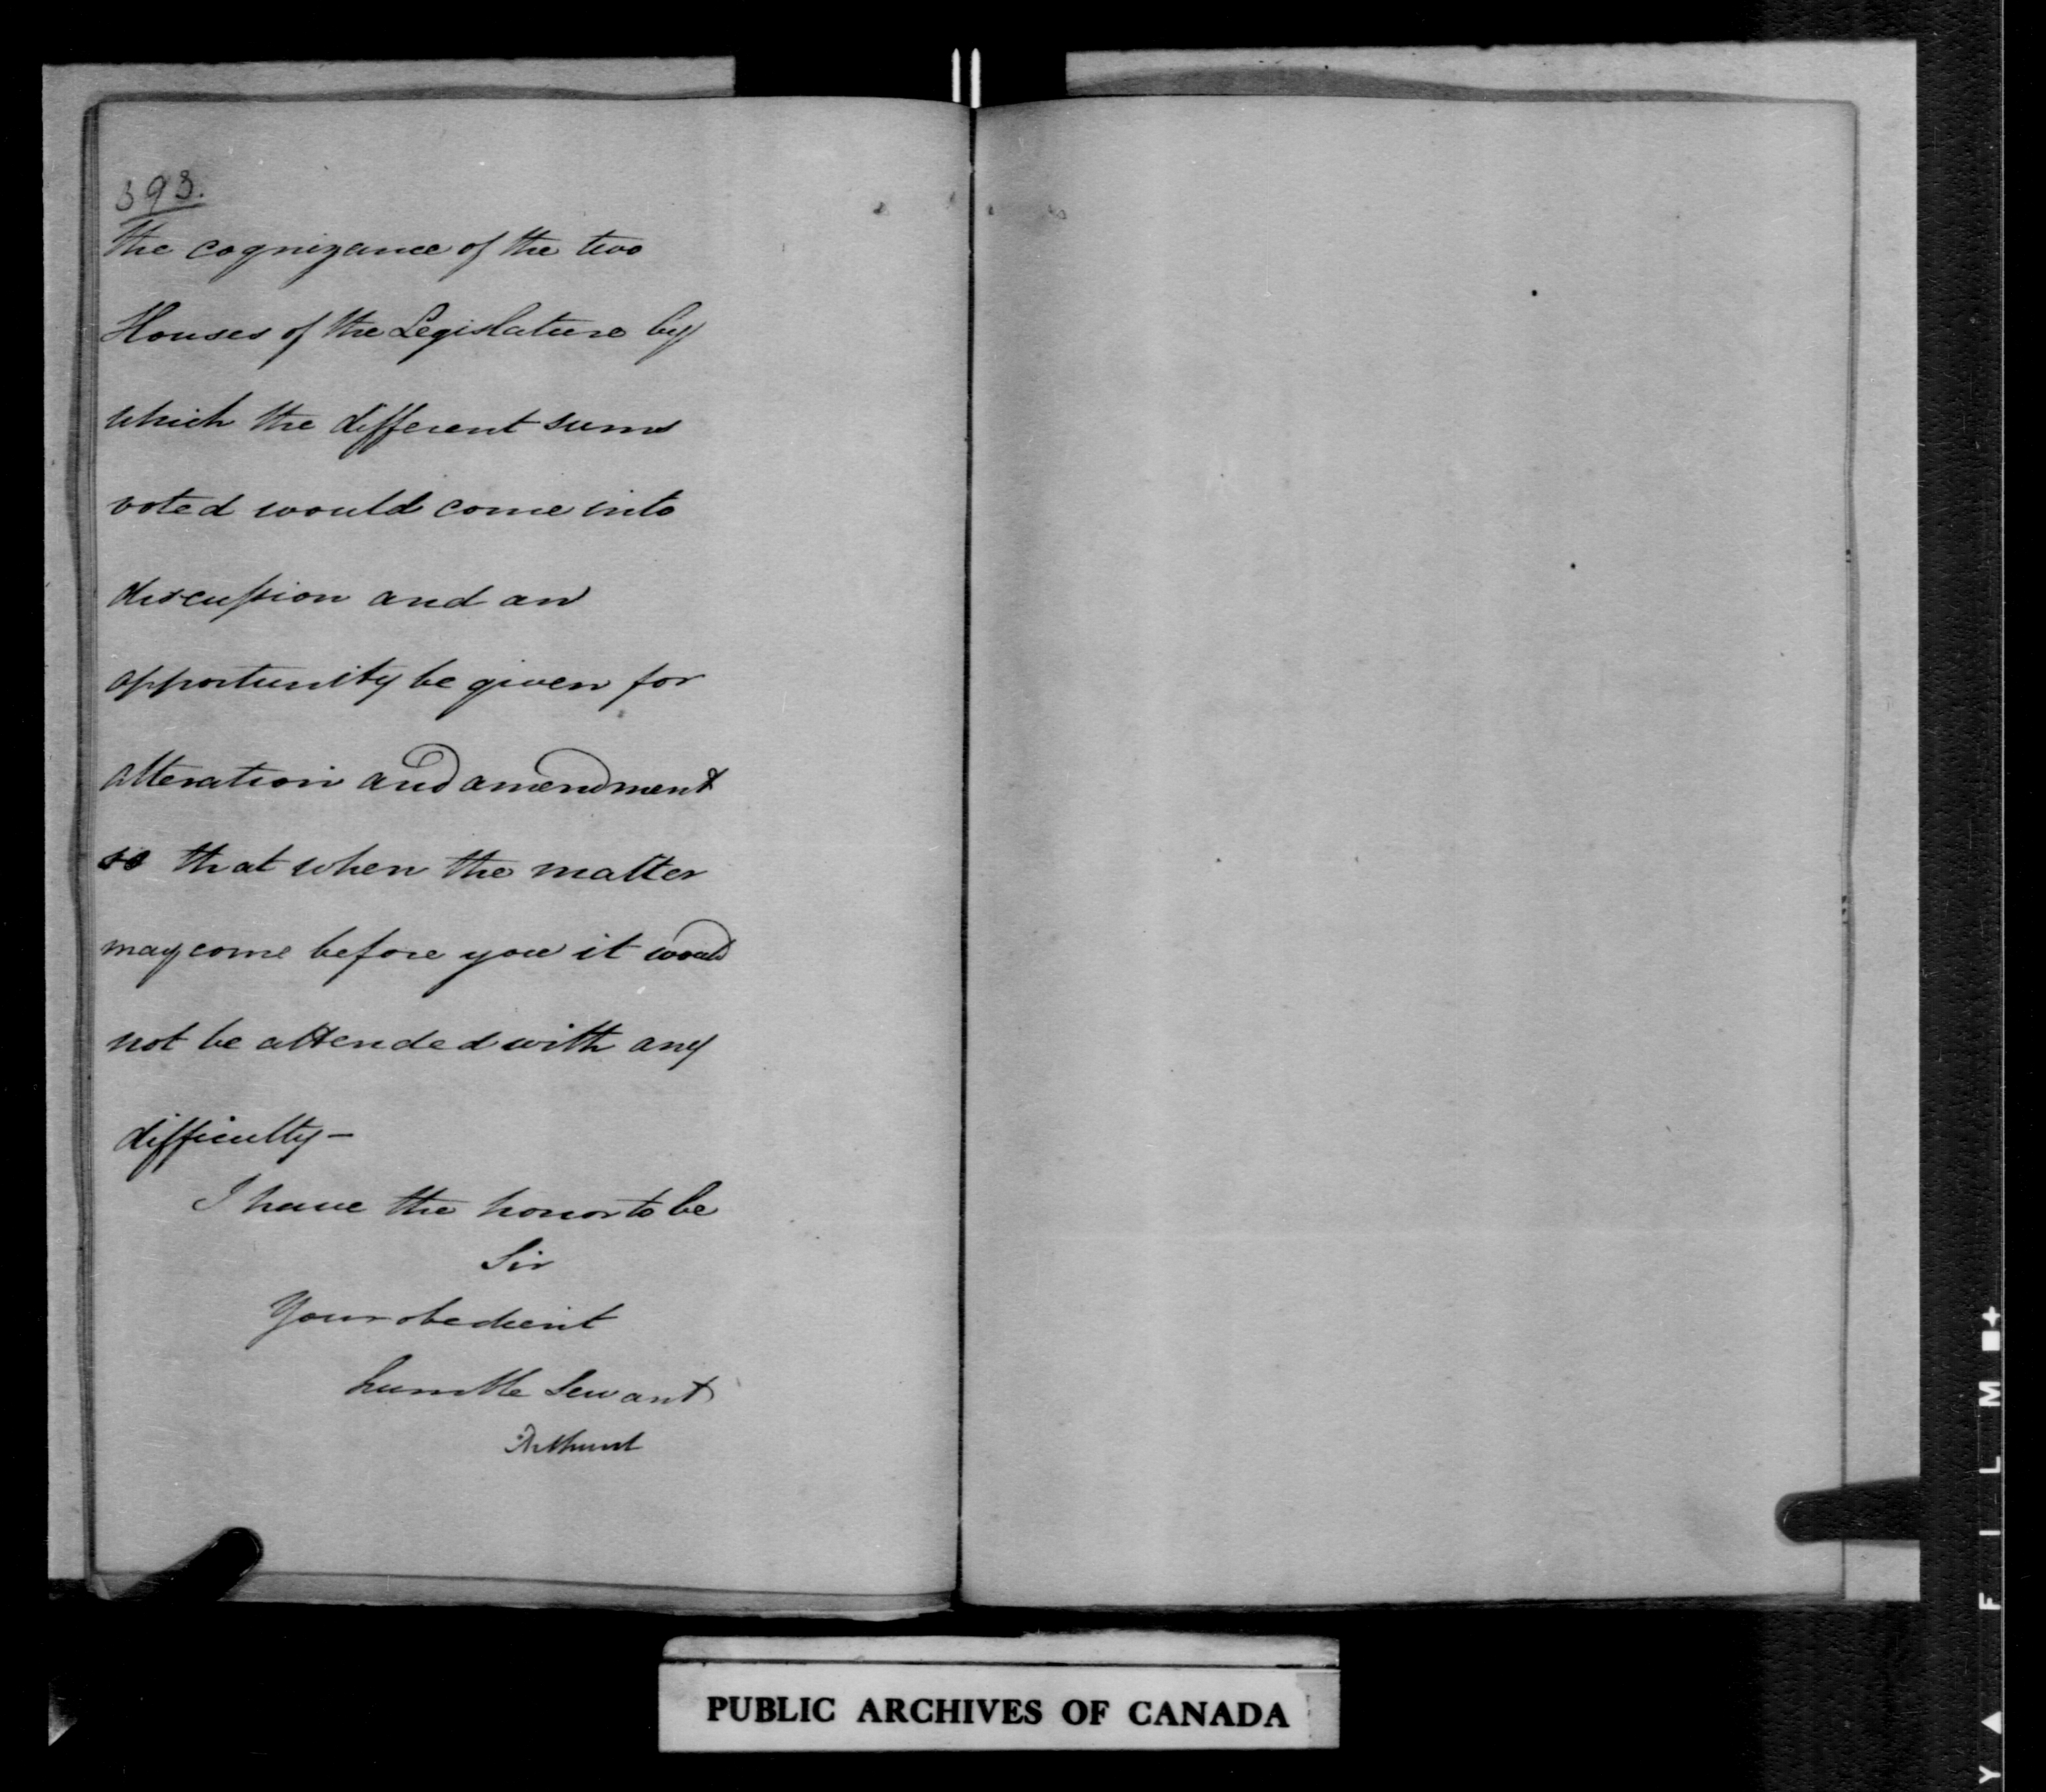 393.
the cognizance of the two
Houses of the Legislature by
which the different sums
voted would come into
discussion and an
opportunity be given for
alteration and amendment
so that when the matter
may come before you it would
not be attended with any
difficulty—
I have the honor to be
Sir
Your obedient
humble Servant
Bathurst
PUBLIC ARCHIVES OF CANADA
Y ▲ F I L M